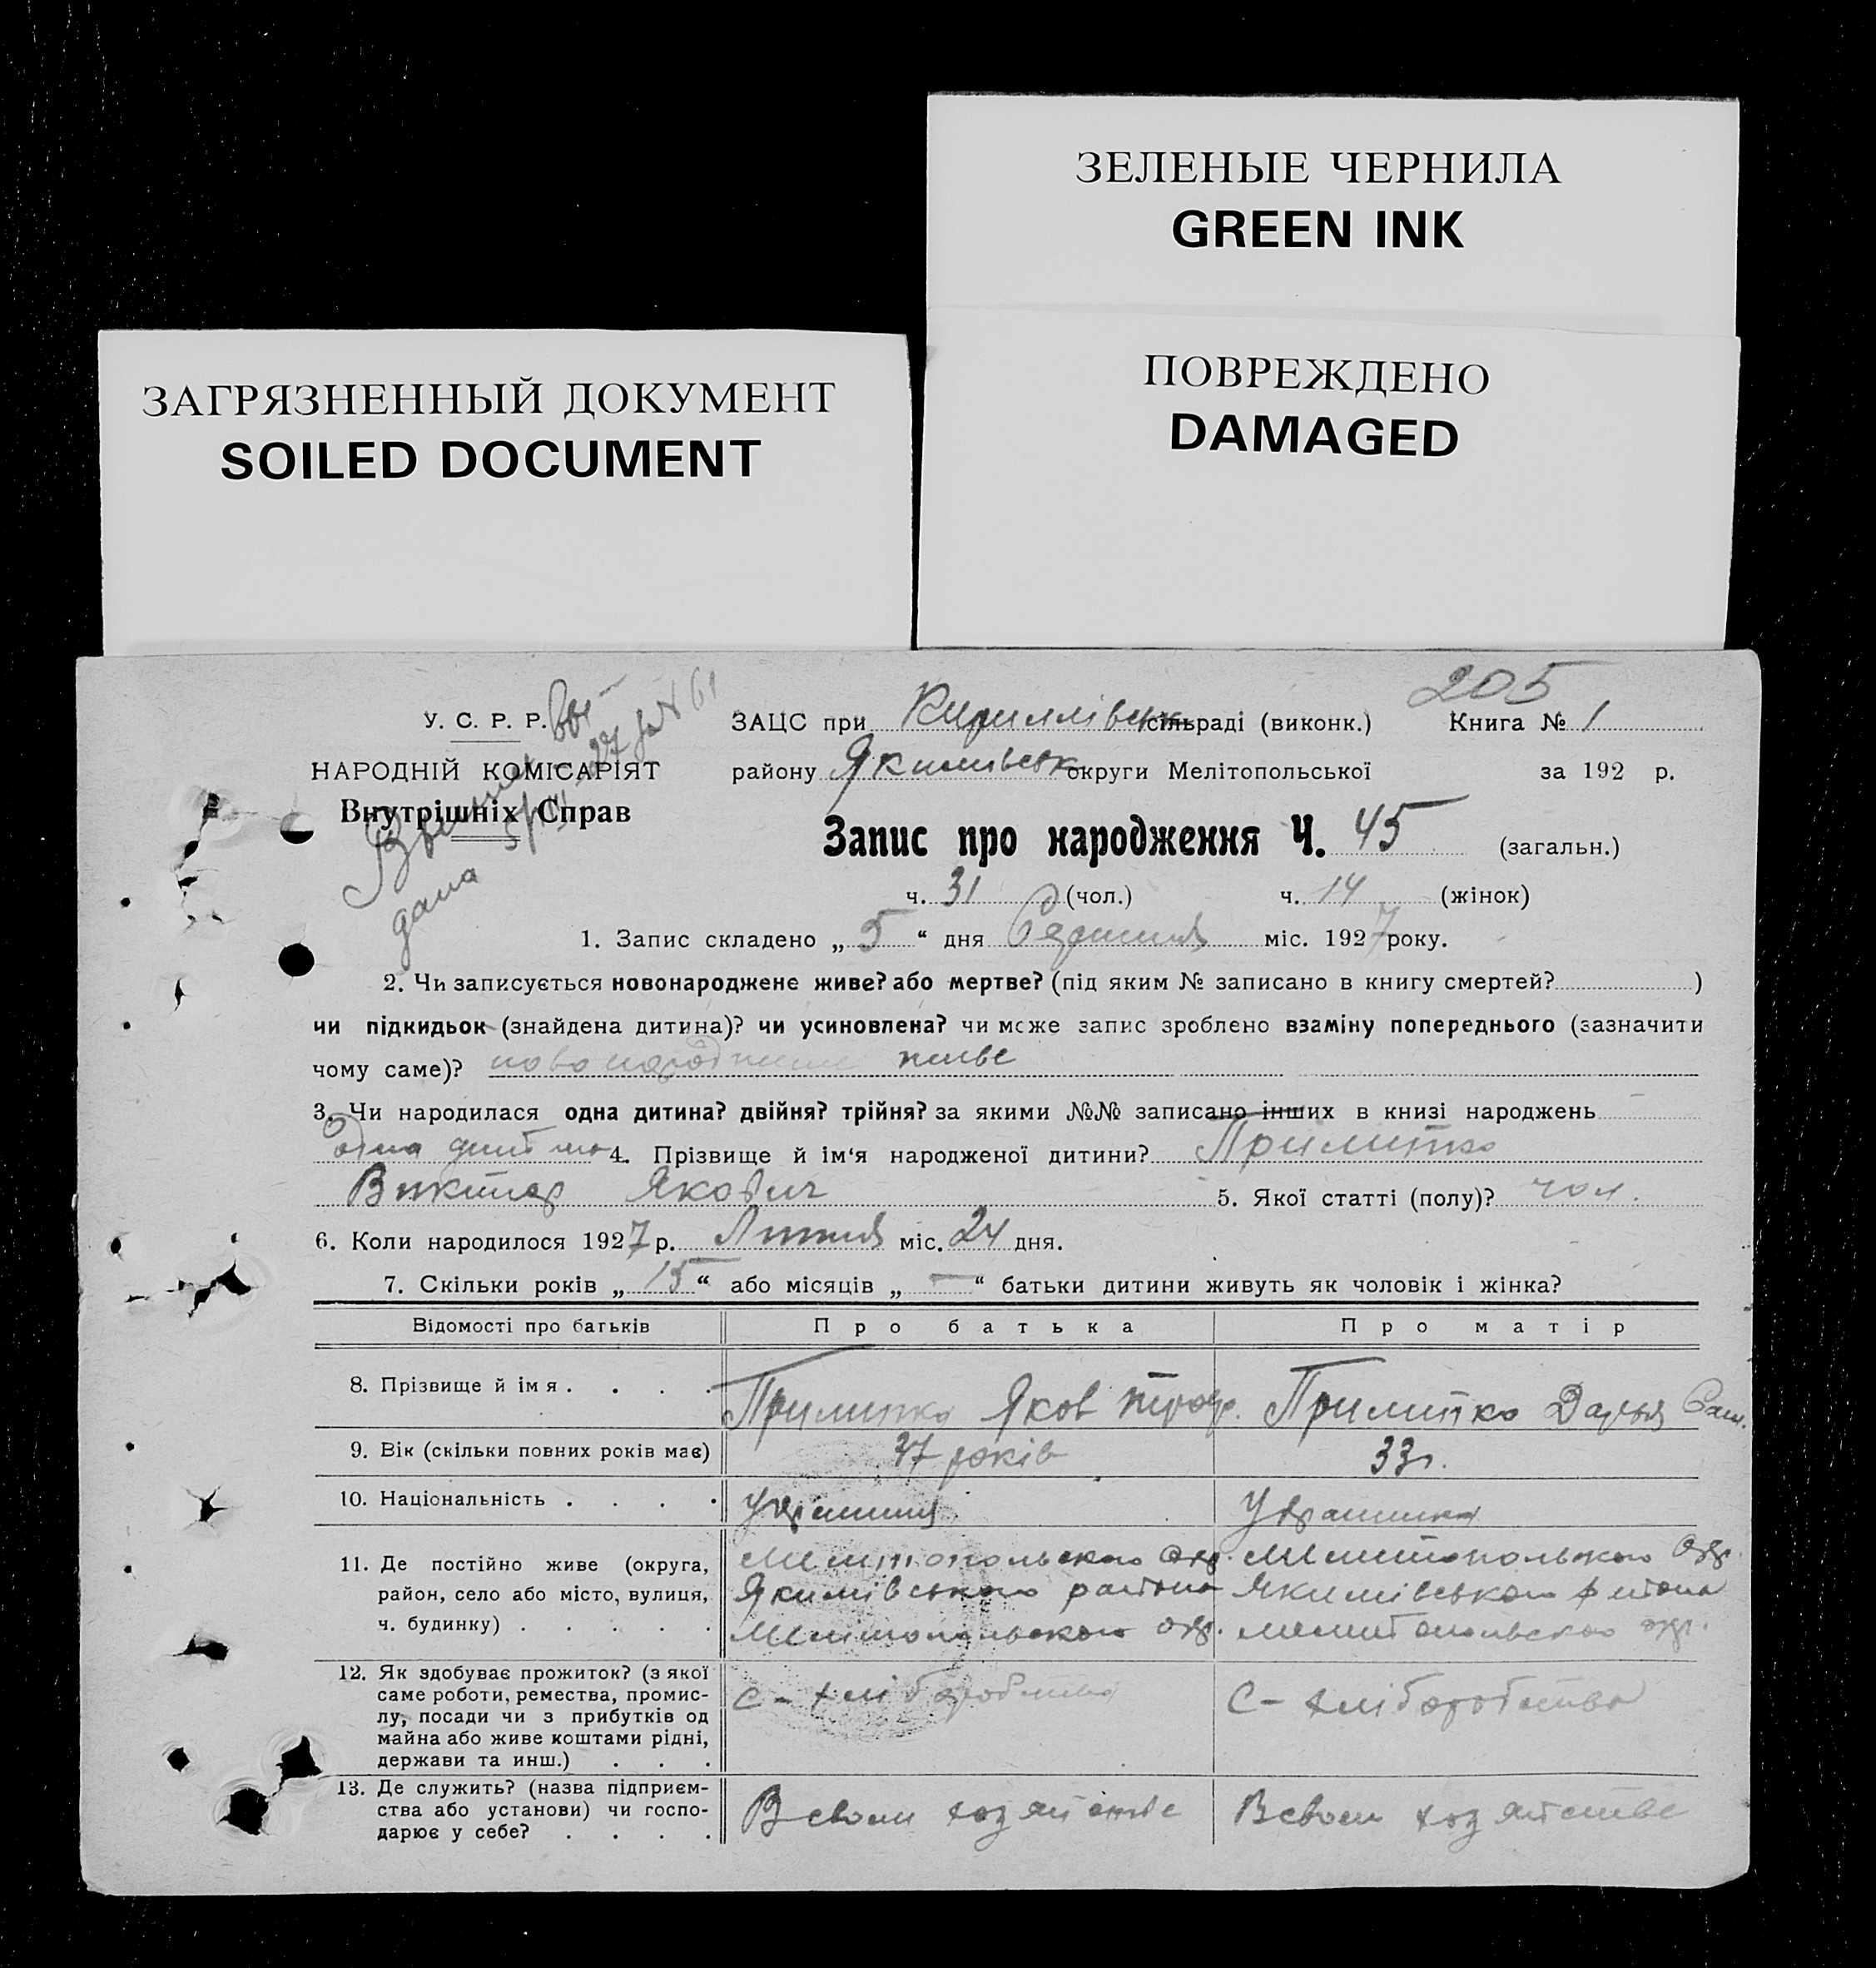 ЗЕЛЕНЫЕ ЧЕРНИЛА
GREEN INK
ЗАГРЯЗНЕННЫЙ ДОКУМЕНТ
SOILED DOCUMENT
ПОВРЕЖДЕНО
DAMAGED
205
У. С. Р. Р.
НАРОДНІЙ КОМІСАРІЯТ
Внутрішніх Справ
дана
ЗАЦС при Кириллівськ сільраді (виконк.) Книга № 1
району Якимівськ округи Мелітопольської за 192 р.
Запис про народження Ч. 45 (загальн.)
ч. 31 (чол.) ч. 14 (жінок)
1. Запис складено „ 5 “ дня міс. 1927 року.
2. Чи записується новонароджене живе? або мертве? (під яким № записано в книгу смертей? )
чи підкидьок (знайдена дитина)? чи усиновлена? чи може запис зроблено взаміну попереднього (зазначити
чому саме)? живе
3. Чи народилася одна дитина? двійня? трійня? за якими №№ записано інших в книзі народжень —
одна 4. Прізвище й ім‘я народженої дитини? Прилипко
Виктор Якович 5. Якої статті (полу)? чол.
6. Коли народилося 1927 р. Липня міс. 24 дня.
7. Скільки років „ 15 “ або місяців „ — “ батьки дитини живуть як чоловік і жінка?
Відомості про батьків Про батька Про матір
8. Прізвище й імя . . . . Прилипко Яков Прилипко Дарья
9. Вік (скільки повних років має) 37 років 33 г.
10. Національність . . . .
11. Де постійно живе (округа, Мелітопольського окр. Мелитопольского окр.
район, село або місто, вулиця, Якимівського района Якимівського района
ч. будинку) . . . . . Мелітопольского окр. мелитопольского окр.
12. Як здобуває прожиток? (з якої
саме роботи, ремества, промис-
лу, посади чи з прибутків од С – хліборобство С – хліборобство
майна або живе коштами рідні,
держави та инш.) . . .
13. Де служить? (назва підприєм-
ства або установи) чи госпо- В своем хозяйстве В своем хозяйстве
дарює у себе? . . . .